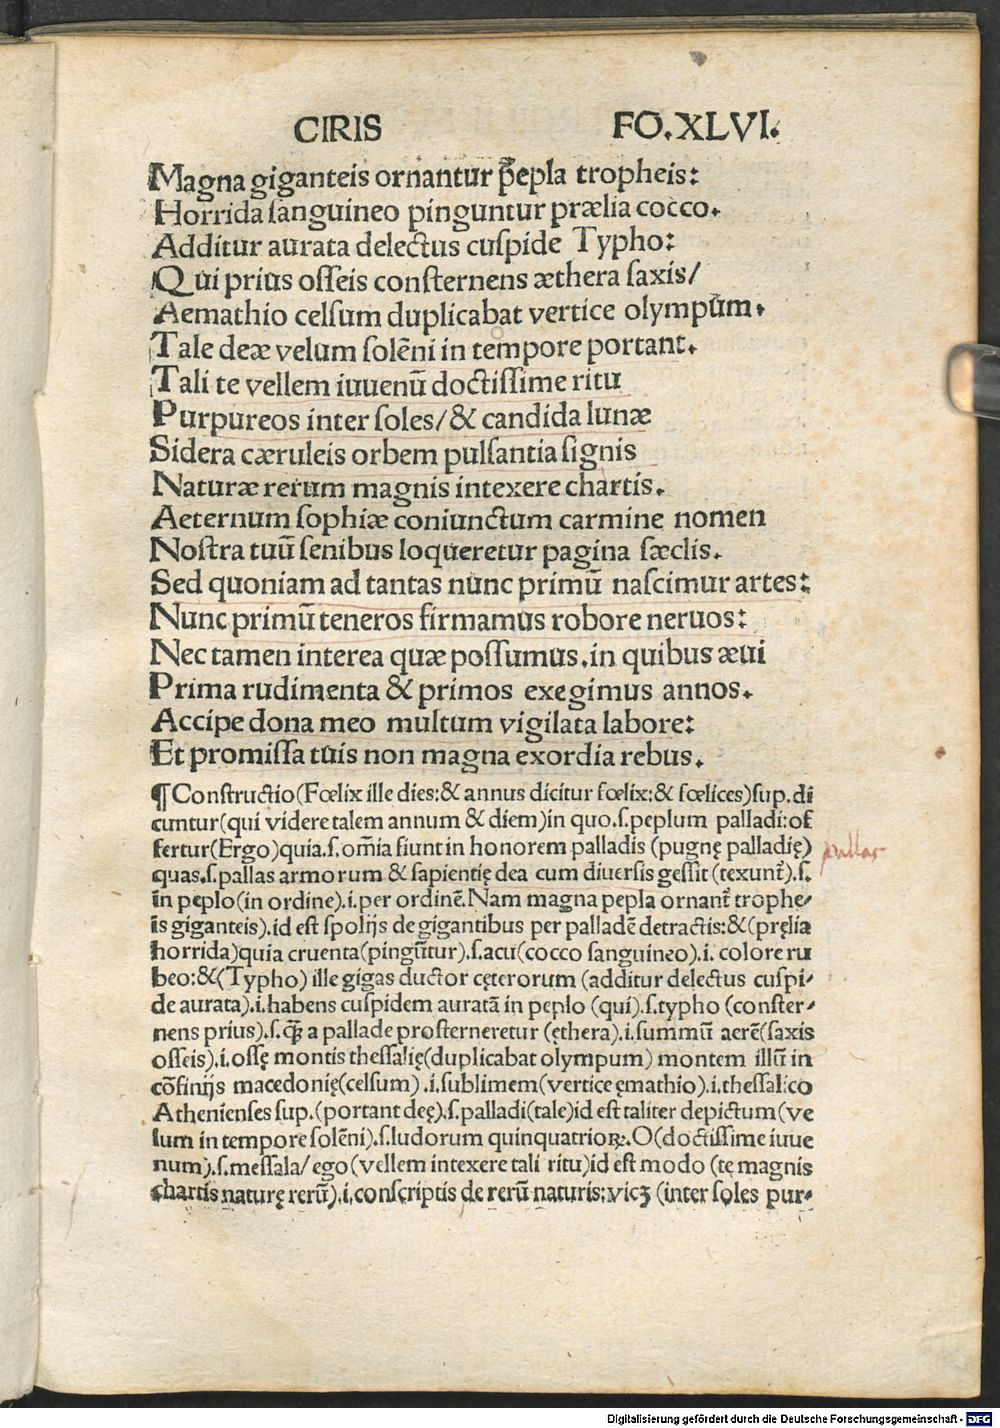 CIRIS FO.XLVI.
Magna giganteis ornantur p̄epla tropheis:
Horrida ſanguineo pinguntur prælia cocco.
Additur aurata delectus cuſpide Typho:
Qui prius oſſeis conſternens æthera ſaxis/
Aemathio celſum duplicabat vertice olympūm.
Tale deæ velum ſolēni in tempore portant.
Tali te vellem iuuenū doctiſſime ritu
Purpureos inter ſoles/& candida lunæ
Sidera cæruleis orbem pulſantia ſignis
Naturæ rerum magnis intexere chartis.
Aeternum ſophiæ coniunctum carmine nomen
Noſtra tuū ſenibus loqueretur pagina ſæclis.
Sed quoniam ad tantas nunc primū naſcimur artes:
Nunc primū teneros firmamus robore neruos:
Nec tamen interea quæ poſſumus.in quibus æui
Prima rudimenta & primos exegimus annos.
Accipe dona meo multum vigilata labore:
Et promiſſa tuis non magna exordia rebus.
¶ Conſtructio(Fœlix ille dies:& annus dicitur fœlix:& fœlices)ſup.di
cuntur(qui videre talem annum & diem)in quo.ſ.peplum palladi:of
fertur(Ergo)quia.ſ.om̄ia fiunt in honorem palladis (pugnę palladię)
pallas
quas.ſ.pallas armorum & ſapientię dea cum diuerſis geſſit (texunt̄).ſ.
in peplo(in ordine).i.per ordinē.Nam magna pepla ornant̄ trophe⸗
is giganteis).id eſt ſpolijs de gigantibus per palladē detractis:&(pręlia
horrida)quia cruenta(pingūtur).ſ.acu(cocco ſanguineo).i. colore ru
beo:&(Typho) ille gigas ductor cęterorum (additur delectus cuſpi⸗
de aurata).i.habens cuſpidem auratā in peplo (qui).ſ.typho (conſter⸗
nens prius).ſ.q̄ a pallade proſterneretur (ęthera).i.ſummū aerē(ſaxis
oſſeis).i.oſſę montis theſſalię(duplicabat olympum) montem illū in
cōfinijs macedonię(celſum) .i.ſublimem(vertice ęmathio).i.theſſalico
Athenienſes ſup.(portant deę).ſ.palladi(tale)id eſt taliter depictum(ve
lum in tempore ſolēni).ſ.ludorum quinquatrioꝝ.O(doctiſſime iuue
num).ſ.meſſala/ego(vellem intexere tali ritu)id eſt modo (te magnis
chartis naturę rerū).i.conſcriptis de rerū naturis:vicꝫ (inter ſoles pur⸗
Digitalisierung gefördert durch die Deutsche Forschungsgemeinschaft - DFG